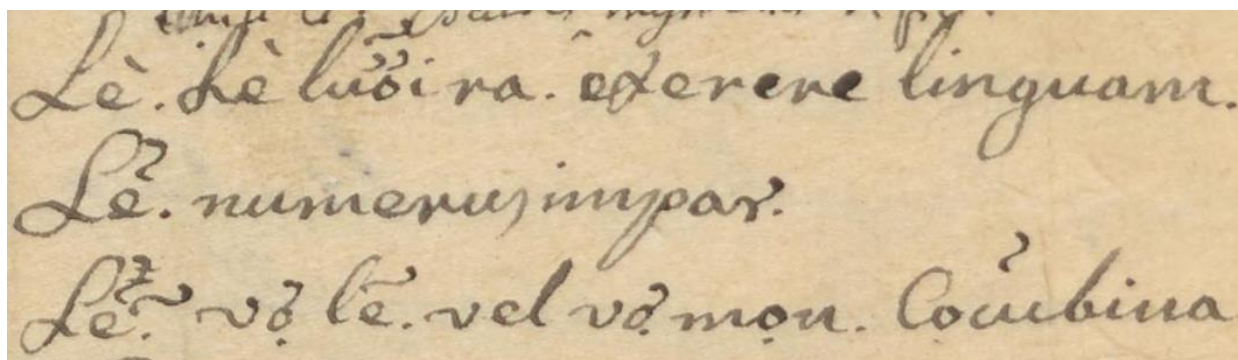 Lè. Lè lưỡi ra. exerere linguam.
Lẻ. numerus impar.
Lẽ. vợ lẽ. vel vợ mọn. Concubina